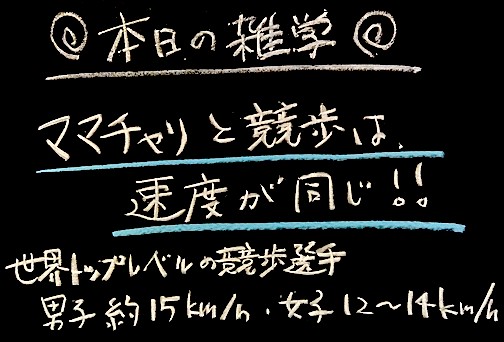 ◎本日の雑学◎
ママチャリと競歩は、
速度が同じ!!
世界トップレベルの競歩選手
男子約15km/h・女子12〜14km/h